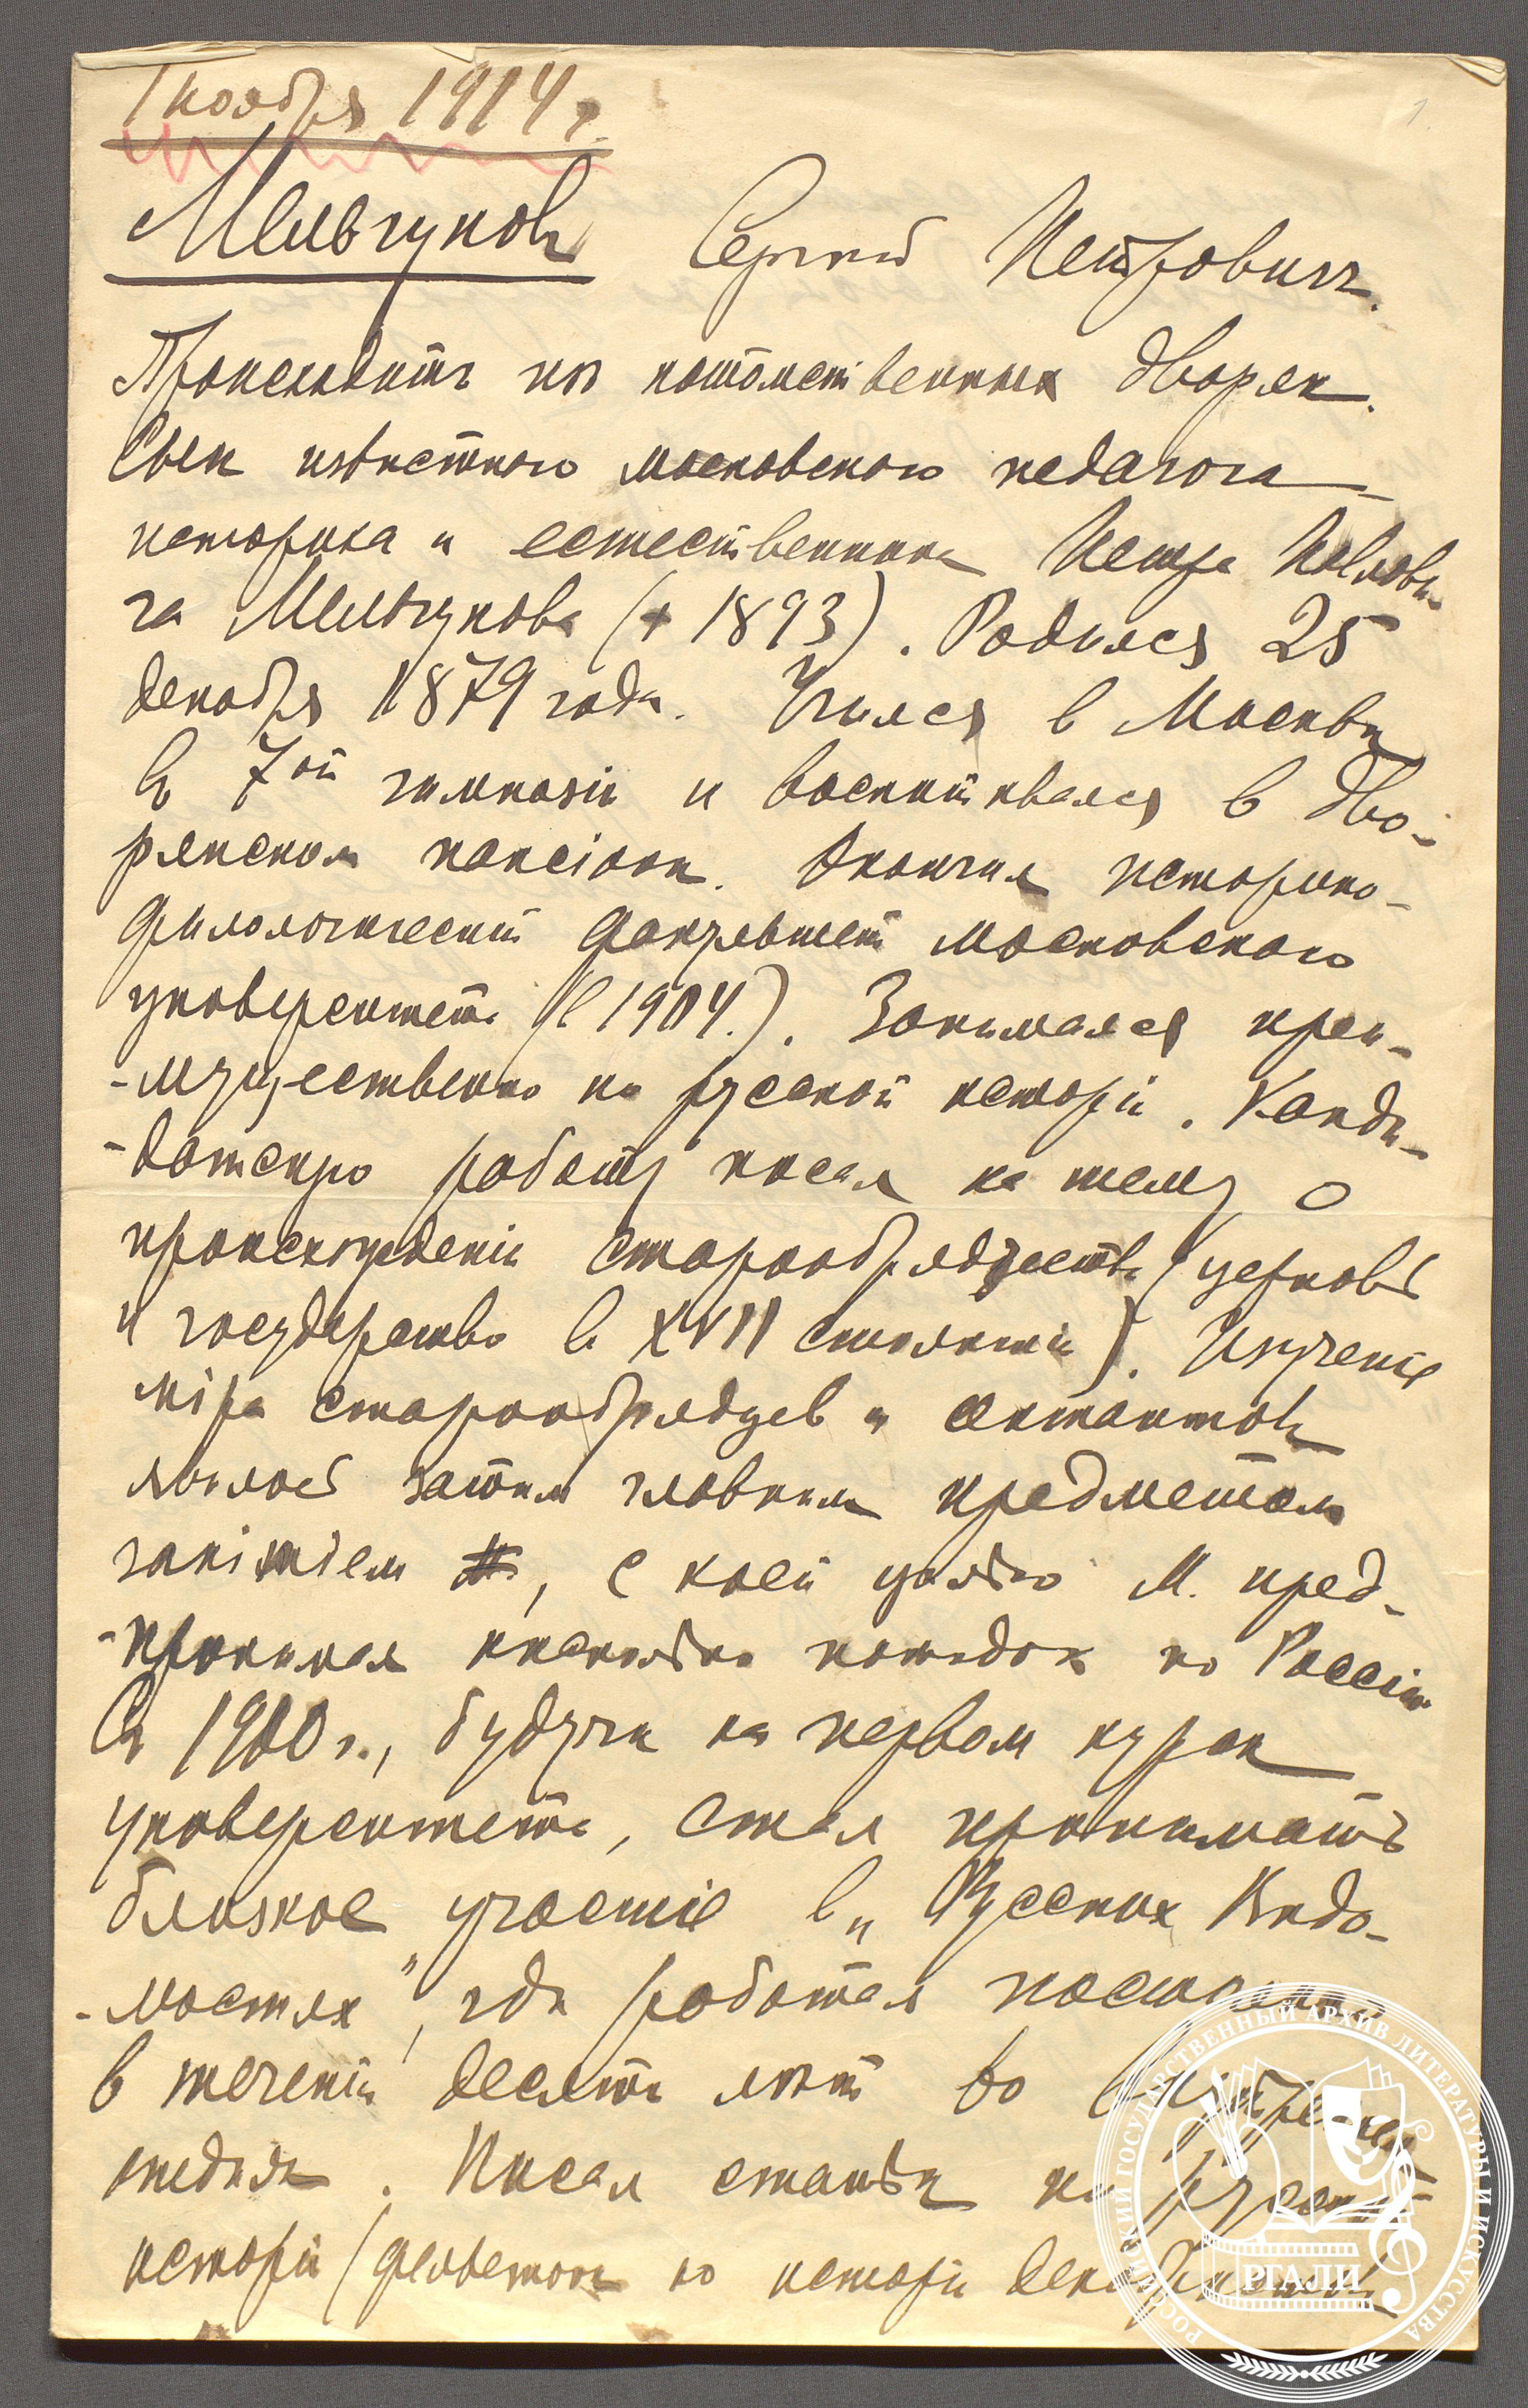 1 ноября 1914 г.
Мельгунов Сергей Петрович.
Происходит из потомственных дворян.
Сын известного московского педагога-
историка и естественника Петра Павлови-
ча Мельгунова († 1893). Родился 25
декабря 1879 года. Учился в Москве
в 7ой гимназіи и воспитывался в дво-
рянском пансіоне. Окончил историко-
филологическій факультет московского
университета (в 1904.). Занимался преи-
-мущественно по русской исторіи. Канди-
-датскую работу писал на тему о
происхожденіи старообрядчества (церковь
и государство в XVII столетіи). Изученіе
міра старообрядцев и сектантов
явилось затем главным предметом
занятіем, с коей целью М. пред-
-принимал несколько поездок по Россіи.
С 1900 г., будучи на первом курсе
университета, стал принимать
близкое участіе в „Русских Ведо-
-мостях", где работал постоянно
в теченіи десяти лет во внутреннем
отделе. Писал статьи по русской
исторіи (фельетоны по исторіи декабристов
РОССИЙСКИЙ ГОСУДАРСТВЕННЫЙ АРХИВ ЛИТЕРАТУРЫ И ИСКУССТВА
РГАЛИ